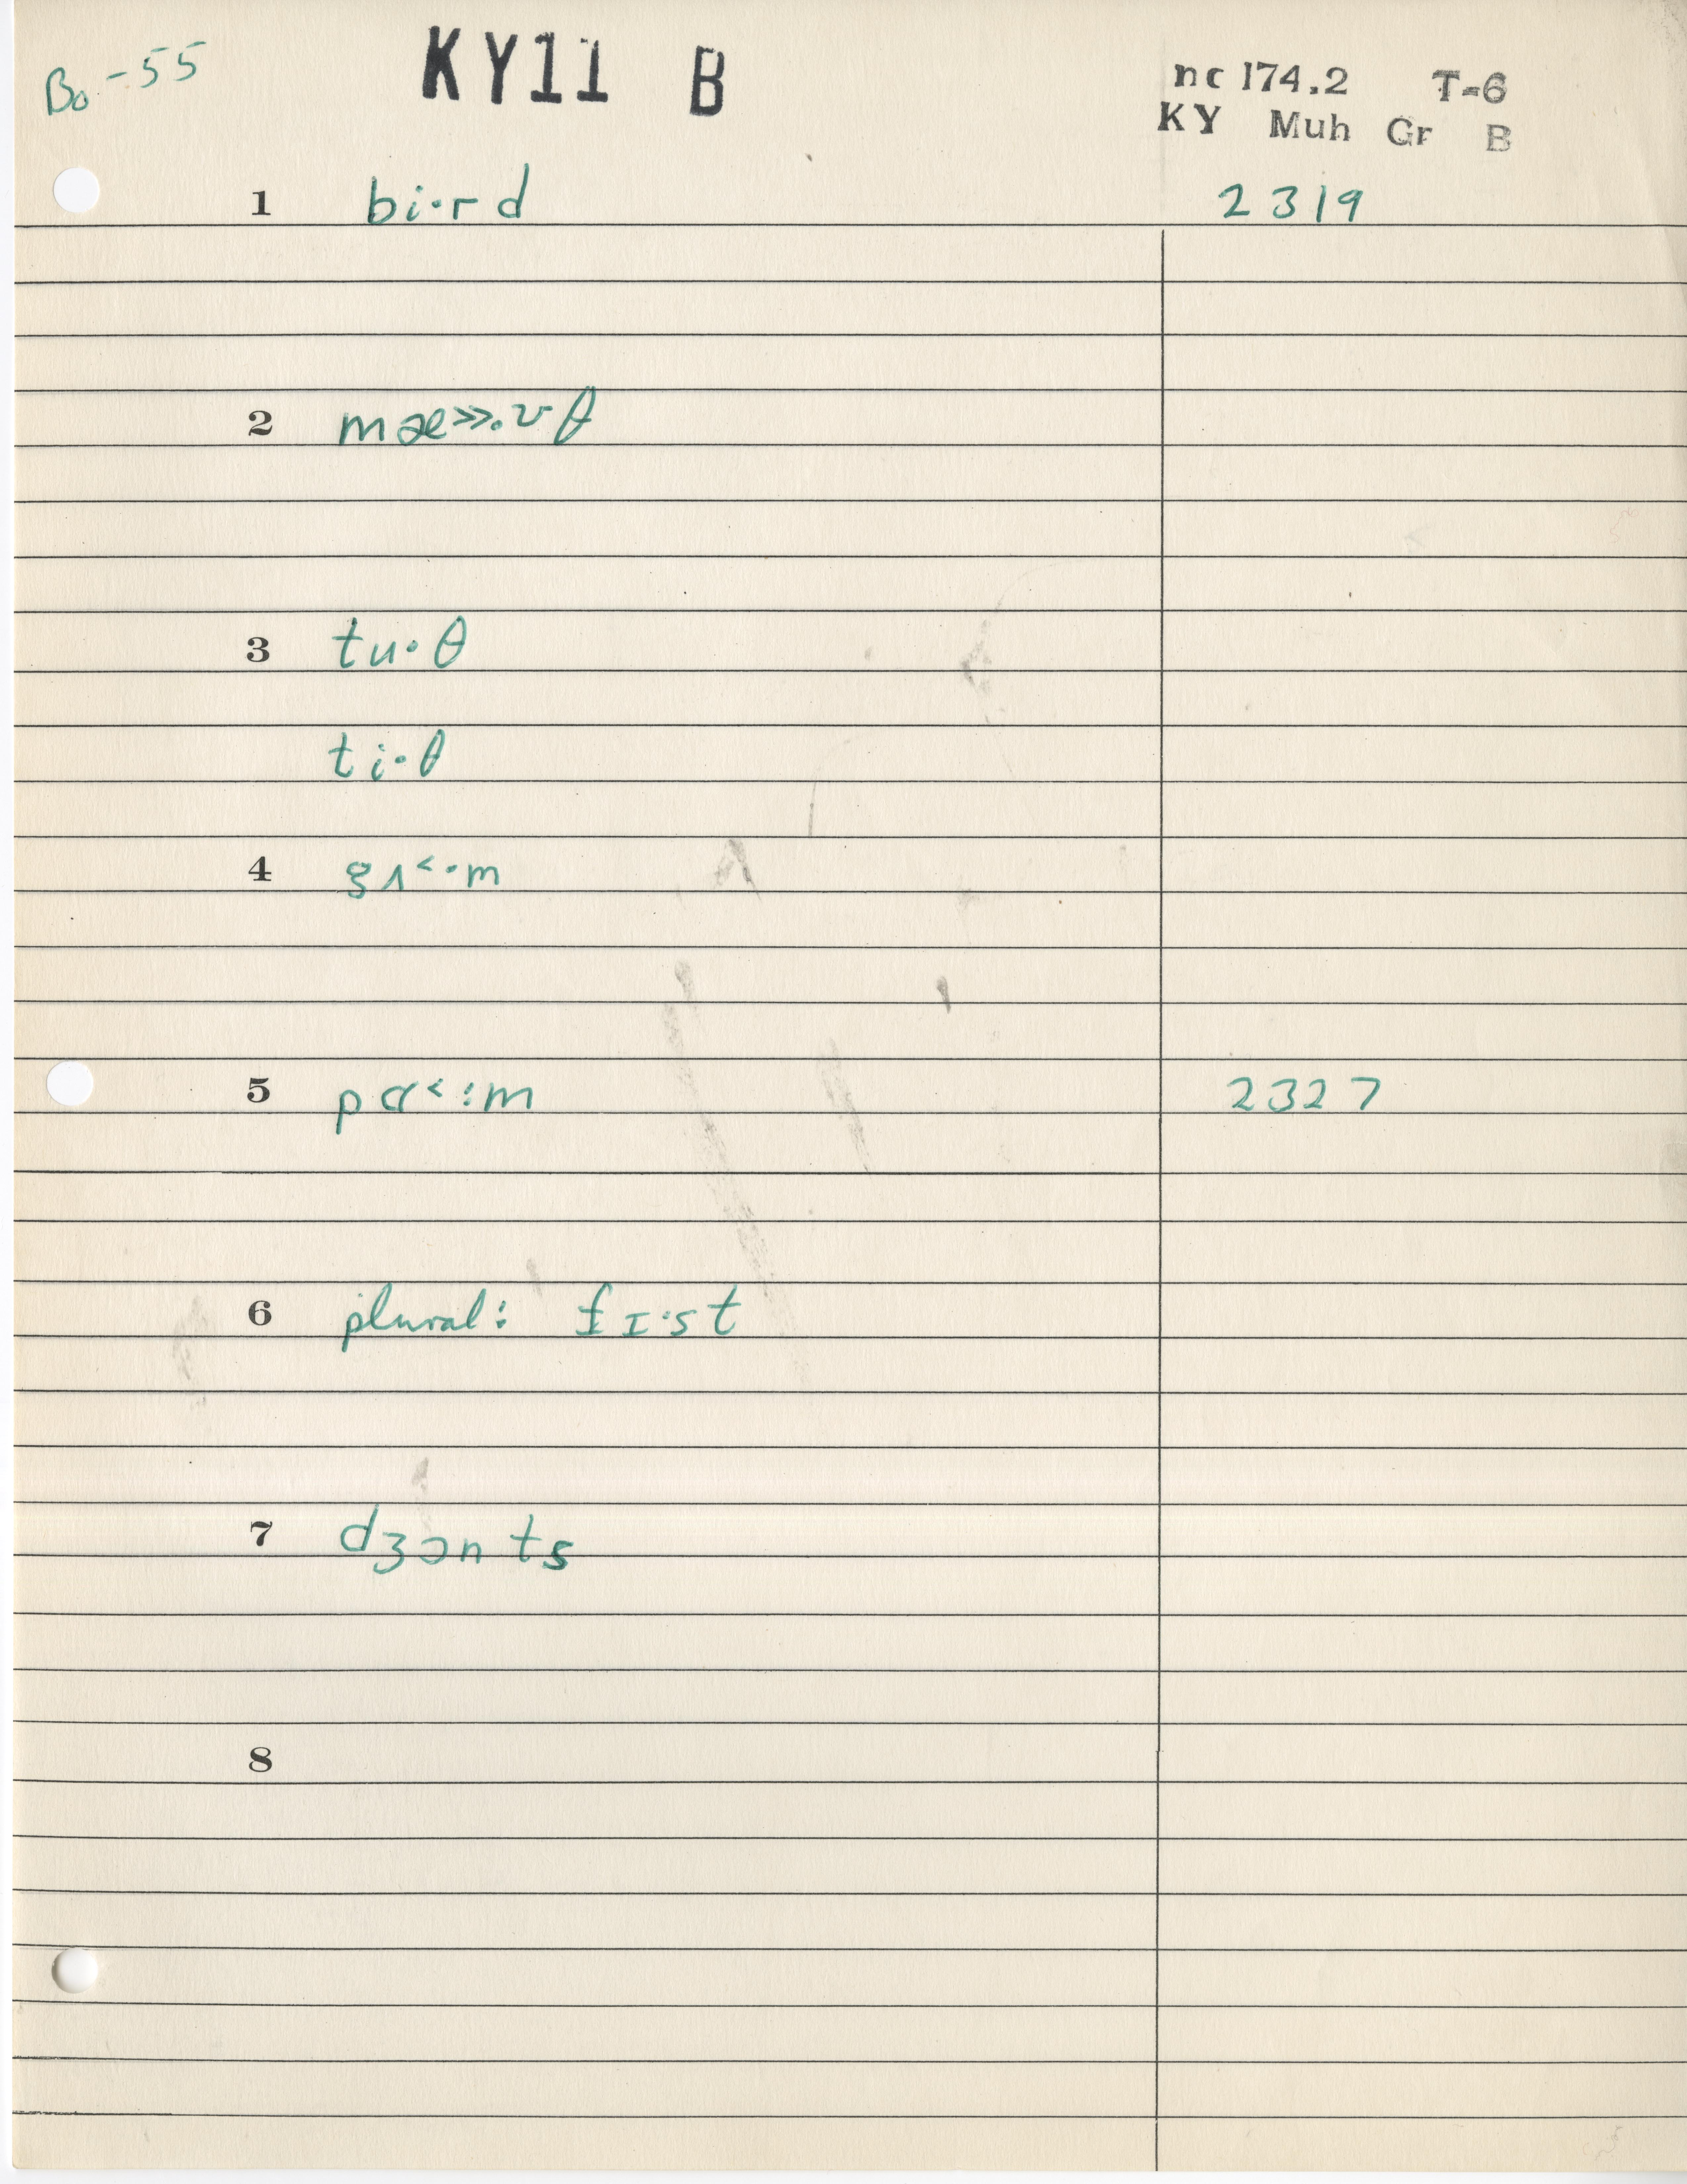 Bo-55 KY11 B nc 174.2 T-6
KY Muh Gr B
1 bi·rd 2319
2 mæ>>·ʊθ
3 tu·θ
ti·θ
4 gʌ<·m
5 pɑ<:m 2327
6 plural: fɪ·st
7 dʒɔnts
8